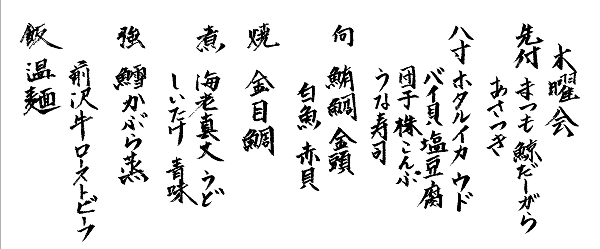 木曜会
先付 まつも 鯨だーがら
あさつき
八寸 ホタルイカ ウド
バイ貝 塩豆腐
団子 株こんぶ
うな寿司
向 鮪 鯛 金頭
白魚 赤貝
焼 金目鯛
煮 海老真丈 うど
しいたけ 青味
強 鱈かぶら蒸
前沢牛ローストビーフ
飯 温麺